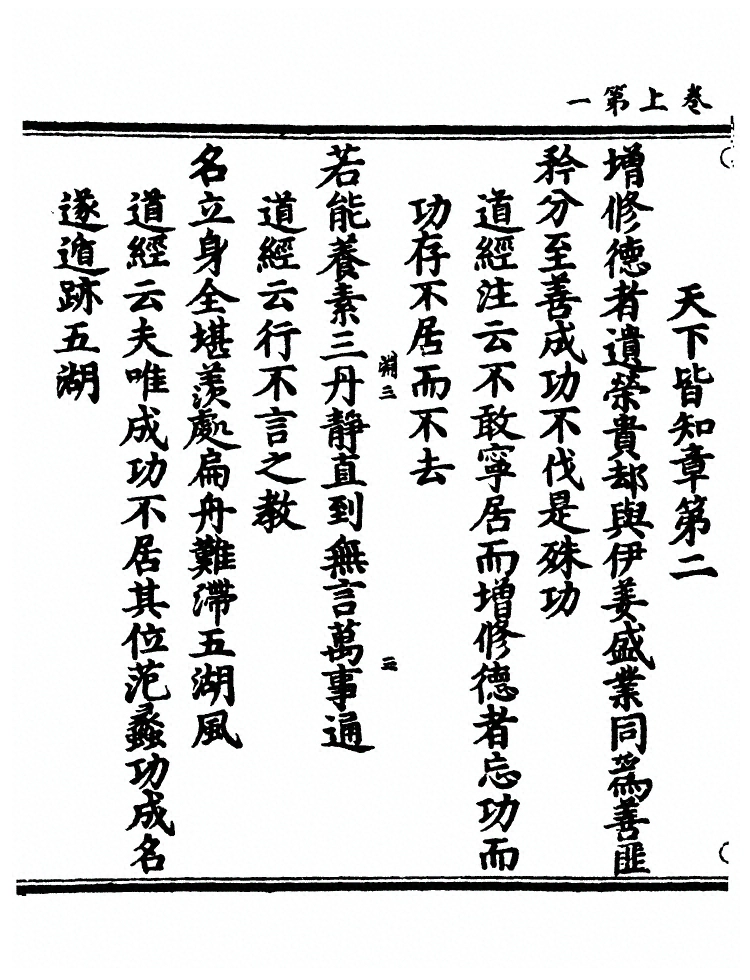 卷上第一
天下皆知章第二
增修德者遺榮貴却與伊姜盛業同爲善匪
矜分至善成功不伐是殊功
道經注云不敢寧居而增修德者忘功而
功存不居而不去
渊三
三
若能養素三丹靜直到無言萬事通
道經云行不言之教
名立身全堪羨處扁舟難滯五湖風
道經云夫唯成功不居其位范蠡功成名
遂遁跡五湖